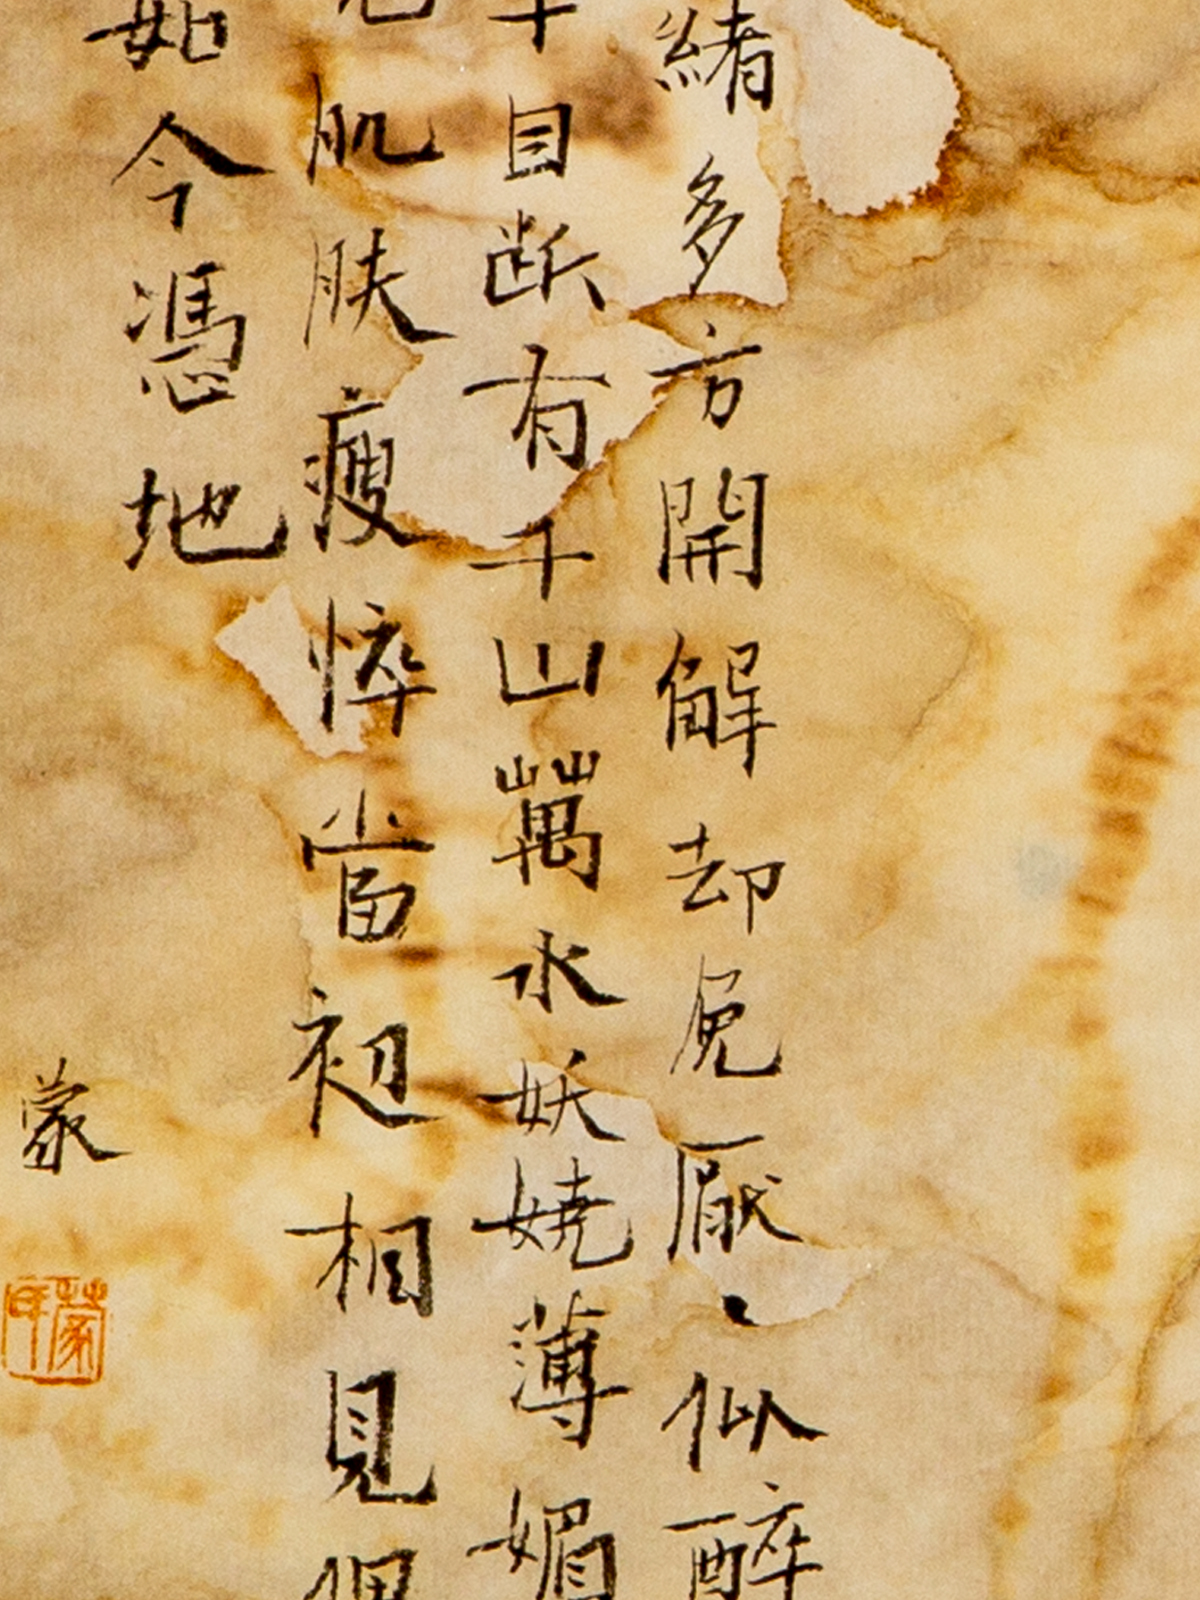 緒多方開解却免厭厭似醉
千目断有千山萬水妖嬈薄媚
肌肤瘦悴當初相見偶
如今憑地
蒙
蒙